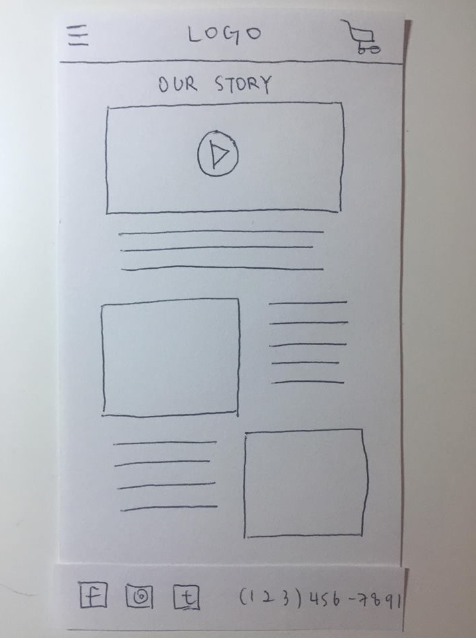 LOGO
OUR STORY
f t (123)456-7891